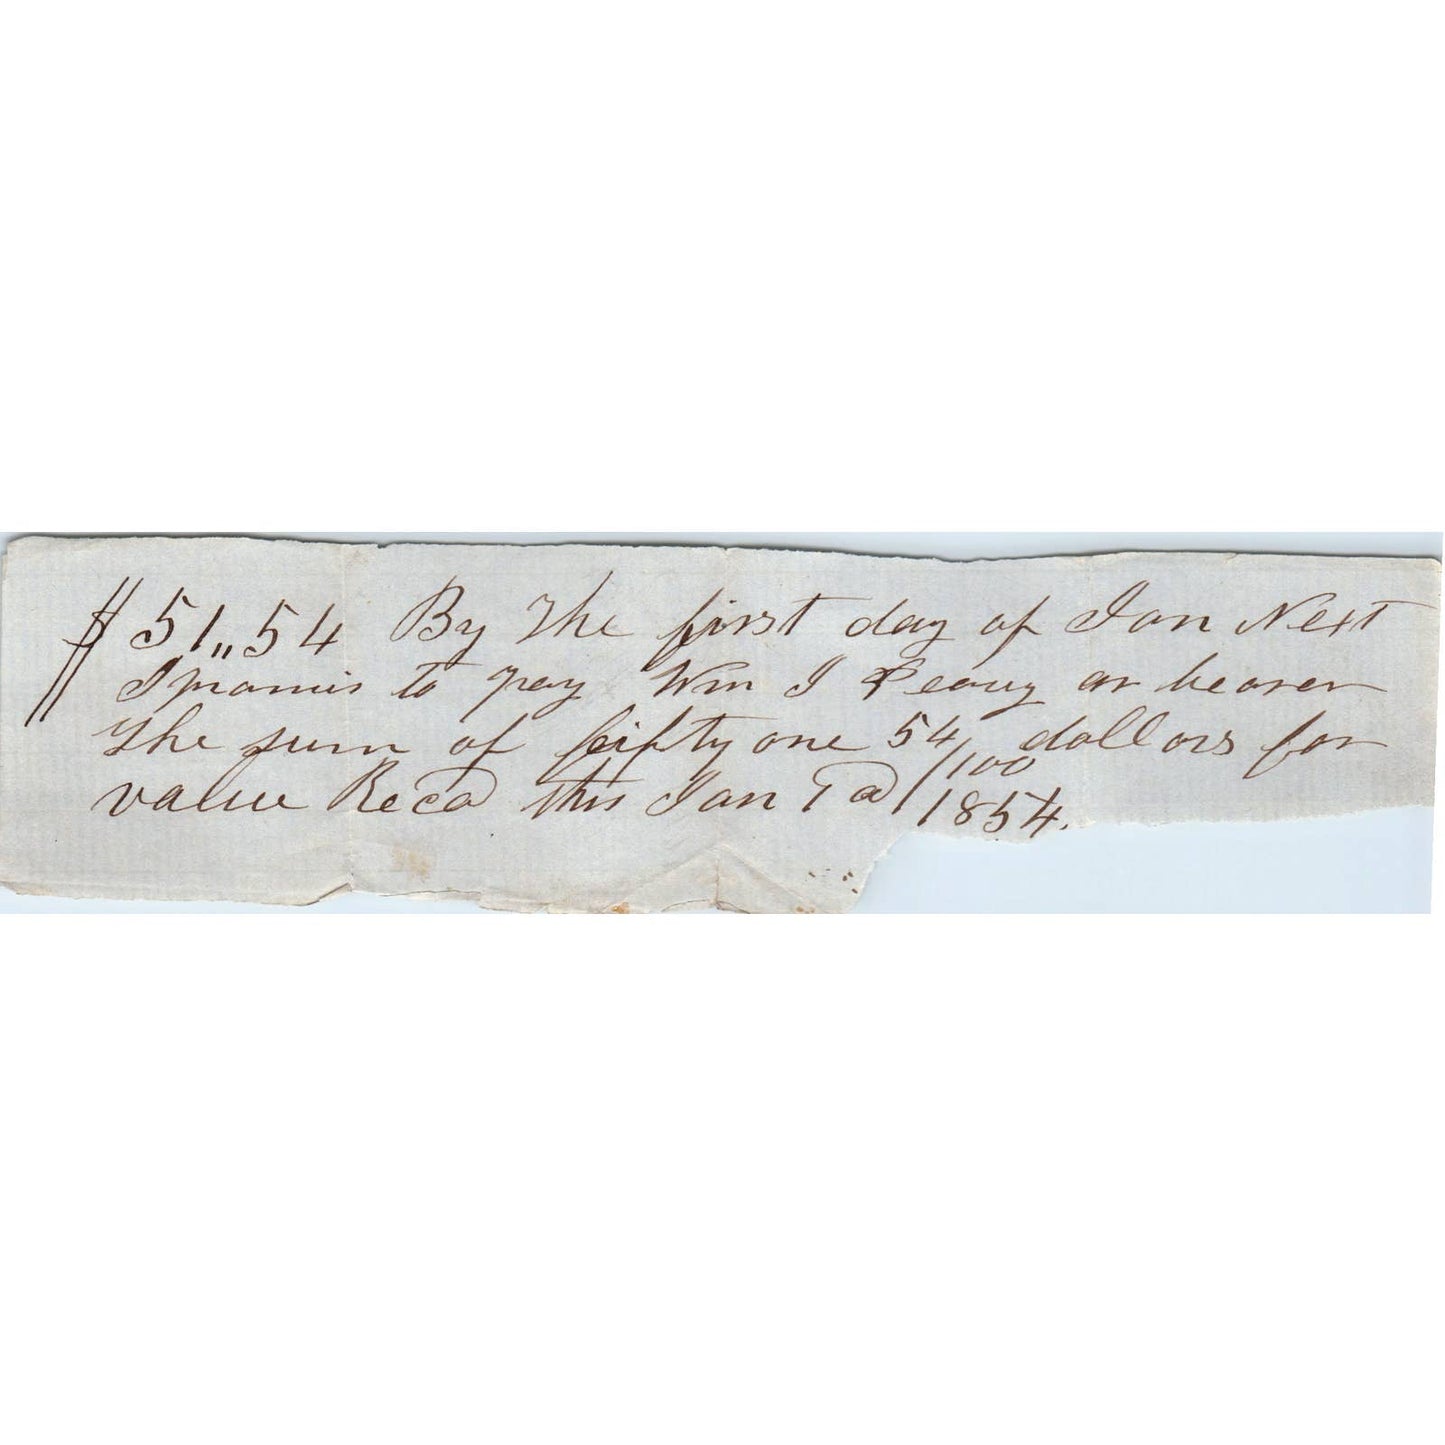 $51,,54 By The first day of Jan Next
I promis to pay Wm I Peavy or bearer
The sum of fifty one 54/100 dollars for
value Recd this Jan 1853
1854.